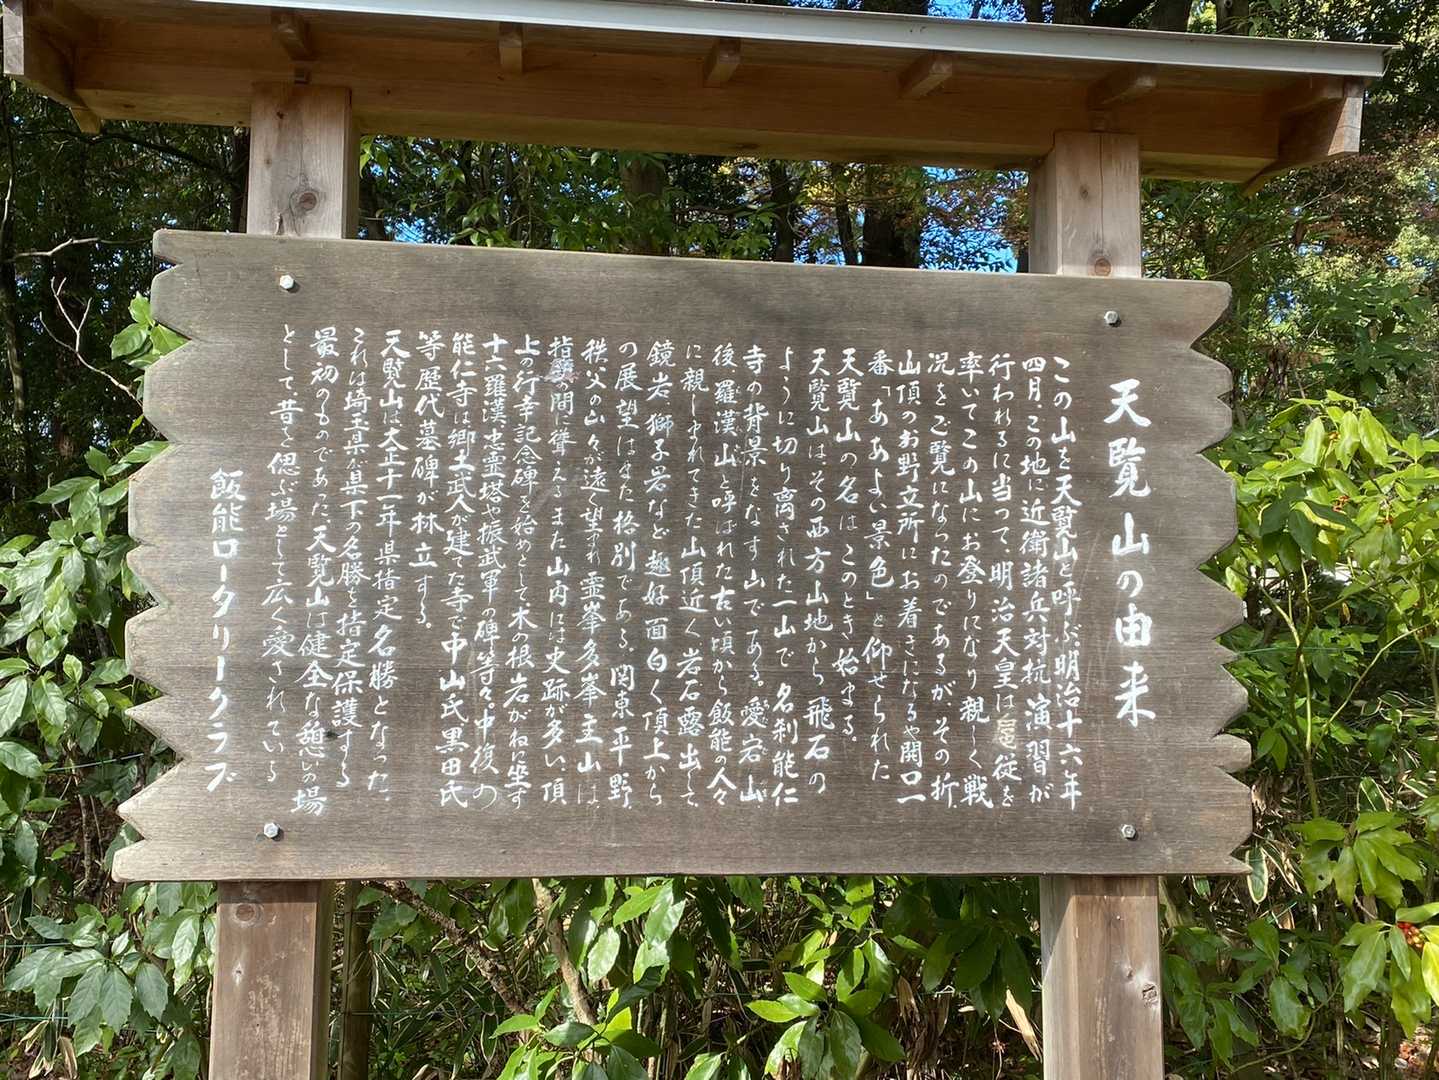 天覧山の由来
この山を天覧山と呼ぶ。明治十六年
四月、この地に近衛諸兵対抗演習が
行われるに当って、明治天皇は扈従を
率いてこの山にお登りになり親しく戦
況をご覧になったのであるが、その折、
山頂のお野立所にお着きになるや開口一
番「ああよい景色」と仰せられた
天覧山の名はこのとき始まる。
天覧山は、その西方山地から飛石の
ように切り離された一山で名刹能仁
寺の背景をなす山である。愛宕山が
後羅漢山と呼ばれた古い頃から飯能の人々
に親しまれてきた山頂近く岩石露出して、
鏡岩、獅子岩など趣好面白く頂上から
の展望はまた格別である。関東平野、
秩父の山々が遠く望まれ霊峯多峯主山は、
指顧の間に聳えるまた山内には史跡が多い、頂
上の行幸記念碑を始めとして木の根岩がねに坐す
十六羅漢、忠霊塔や振武軍の碑、等々。中後の
能仁寺は郷土武人が建てた寺で中山氏黒田氏
等歴代墓碑が林立する。
天覧山は大正十一年県指定名勝となった、
これは埼玉県が県下の名勝を指定保護する
最初のものであった、天覧山は健全な憩いの場
として、昔を偲ぶ場として広く愛されている
飯能ロータリークラブ